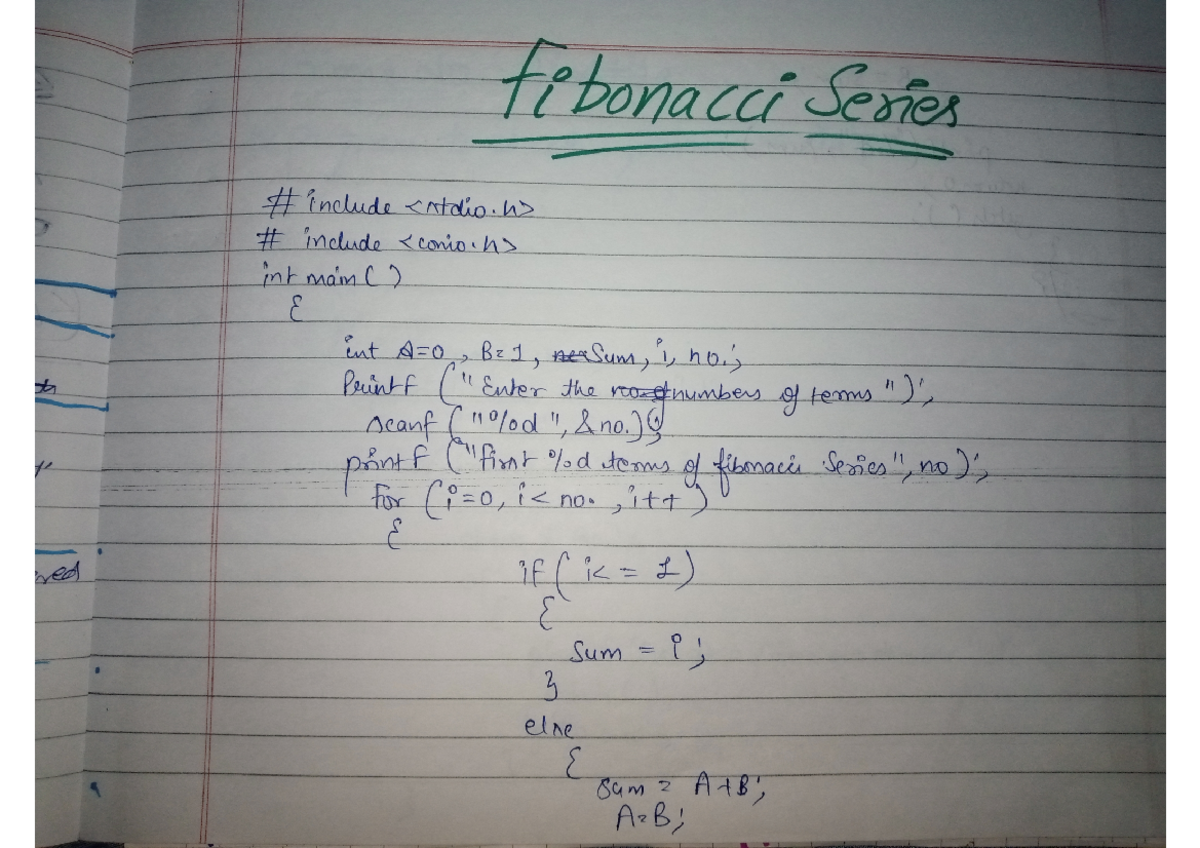 Fibonacci Series
# include <stdio.h>
# include <conio.h>
int main ( )
{
int A=0, B=1, Sum, i, no.;
Printf ("Enter the numbers of terms");
scanf ("%d", &no.);
printf ("first %d terms of fibonacci Series", no);
for (i=0, i< no. , i++)
{
if ( i< = 1)
{
Sum = i;
}
else
{
Sum = A+B;
A=B;
ved